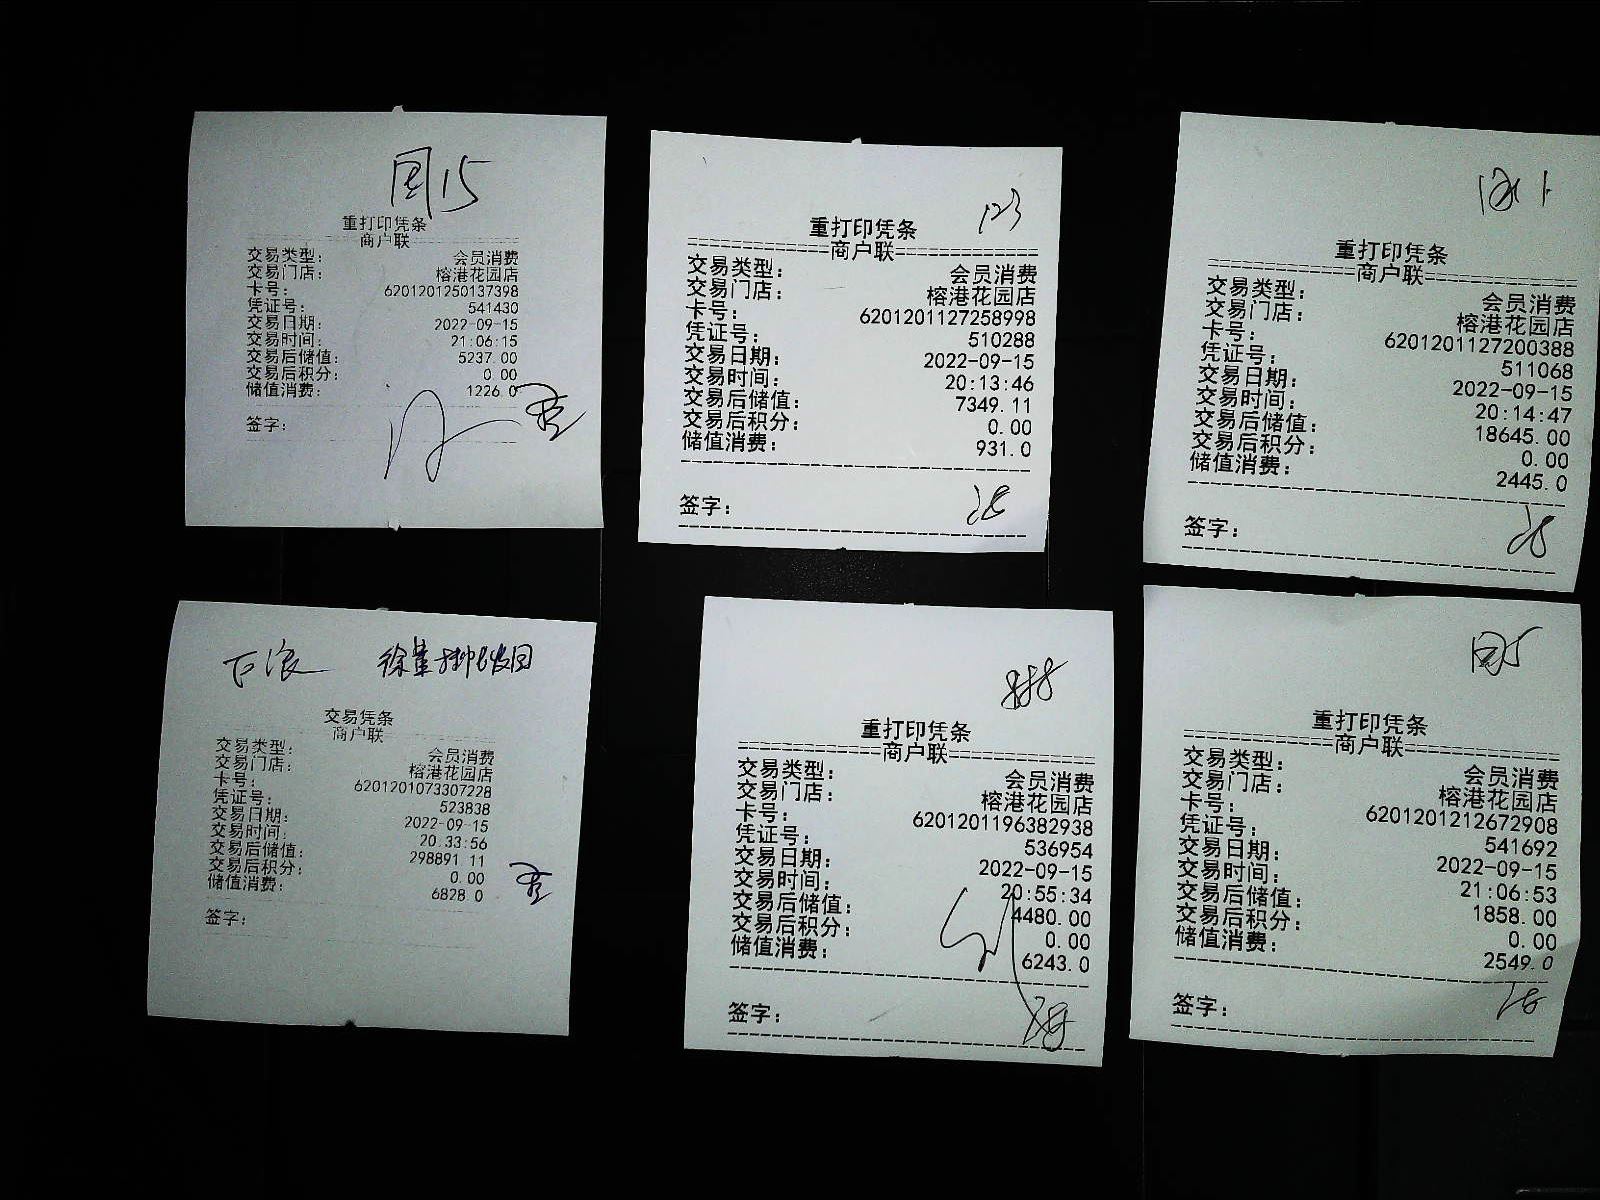 重打印凭条
商户联
交易类型： 会员消费
交易门店： 榕港花园店
卡号： 6201201250137398
凭证号： 541430
交易日期： 2022-09-15
交易时间： 21:06:15
交易后储值： 5237.00
交易后积分： 0.00
储值消费： 1226.0
签字：
123
重打印凭条
商户联
交易类型： 会员消费
交易门店： 榕港花园店
卡号： 6201201127258998
凭证号： 510288
交易日期： 2022-09-15
交易时间： 20:13:46
交易后储值： 7349.11
交易后积分： 0.00
储值消费： 931.0
签字：
重打印凭条
商户联
交易类型： 会员消费
交易门店： 榕港花园店
卡号： 6201201127200388
凭证号： 511068
交易日期： 2022-09-15
交易时间： 20:14:47
交易后储值： 18645.00
交易后积分： 0.00
储值消费： 2445.0
签字：
交易凭条
商户联
交易类型： 会员消费
交易门店： 榕港花园店
卡号： 6201201073307228
凭证号： 523838
交易日期： 2022-09-15
交易时间： 20:33:56
交易后储值： 298891.11
交易后积分： 0.00
储值消费： 6828.0
签字：
888
重打印凭条
商户联
交易类型： 会员消费
交易门店： 榕港花园店
卡号： 6201201196382938
凭证号： 536954
交易日期： 2022-09-15
交易时间： 20:55:34
交易后储值： 4480.00
交易后积分： 0.00
储值消费： 6243.0
签字：
重打印凭条
商户联
交易类型： 会员消费
交易门店： 榕港花园店
卡号： 6201201212672908
凭证号： 541692
交易日期： 2022-09-15
交易时间： 21:06:53
交易后储值： 1858.00
交易后积分： 0.00
储值消费： 2549.0
签字：